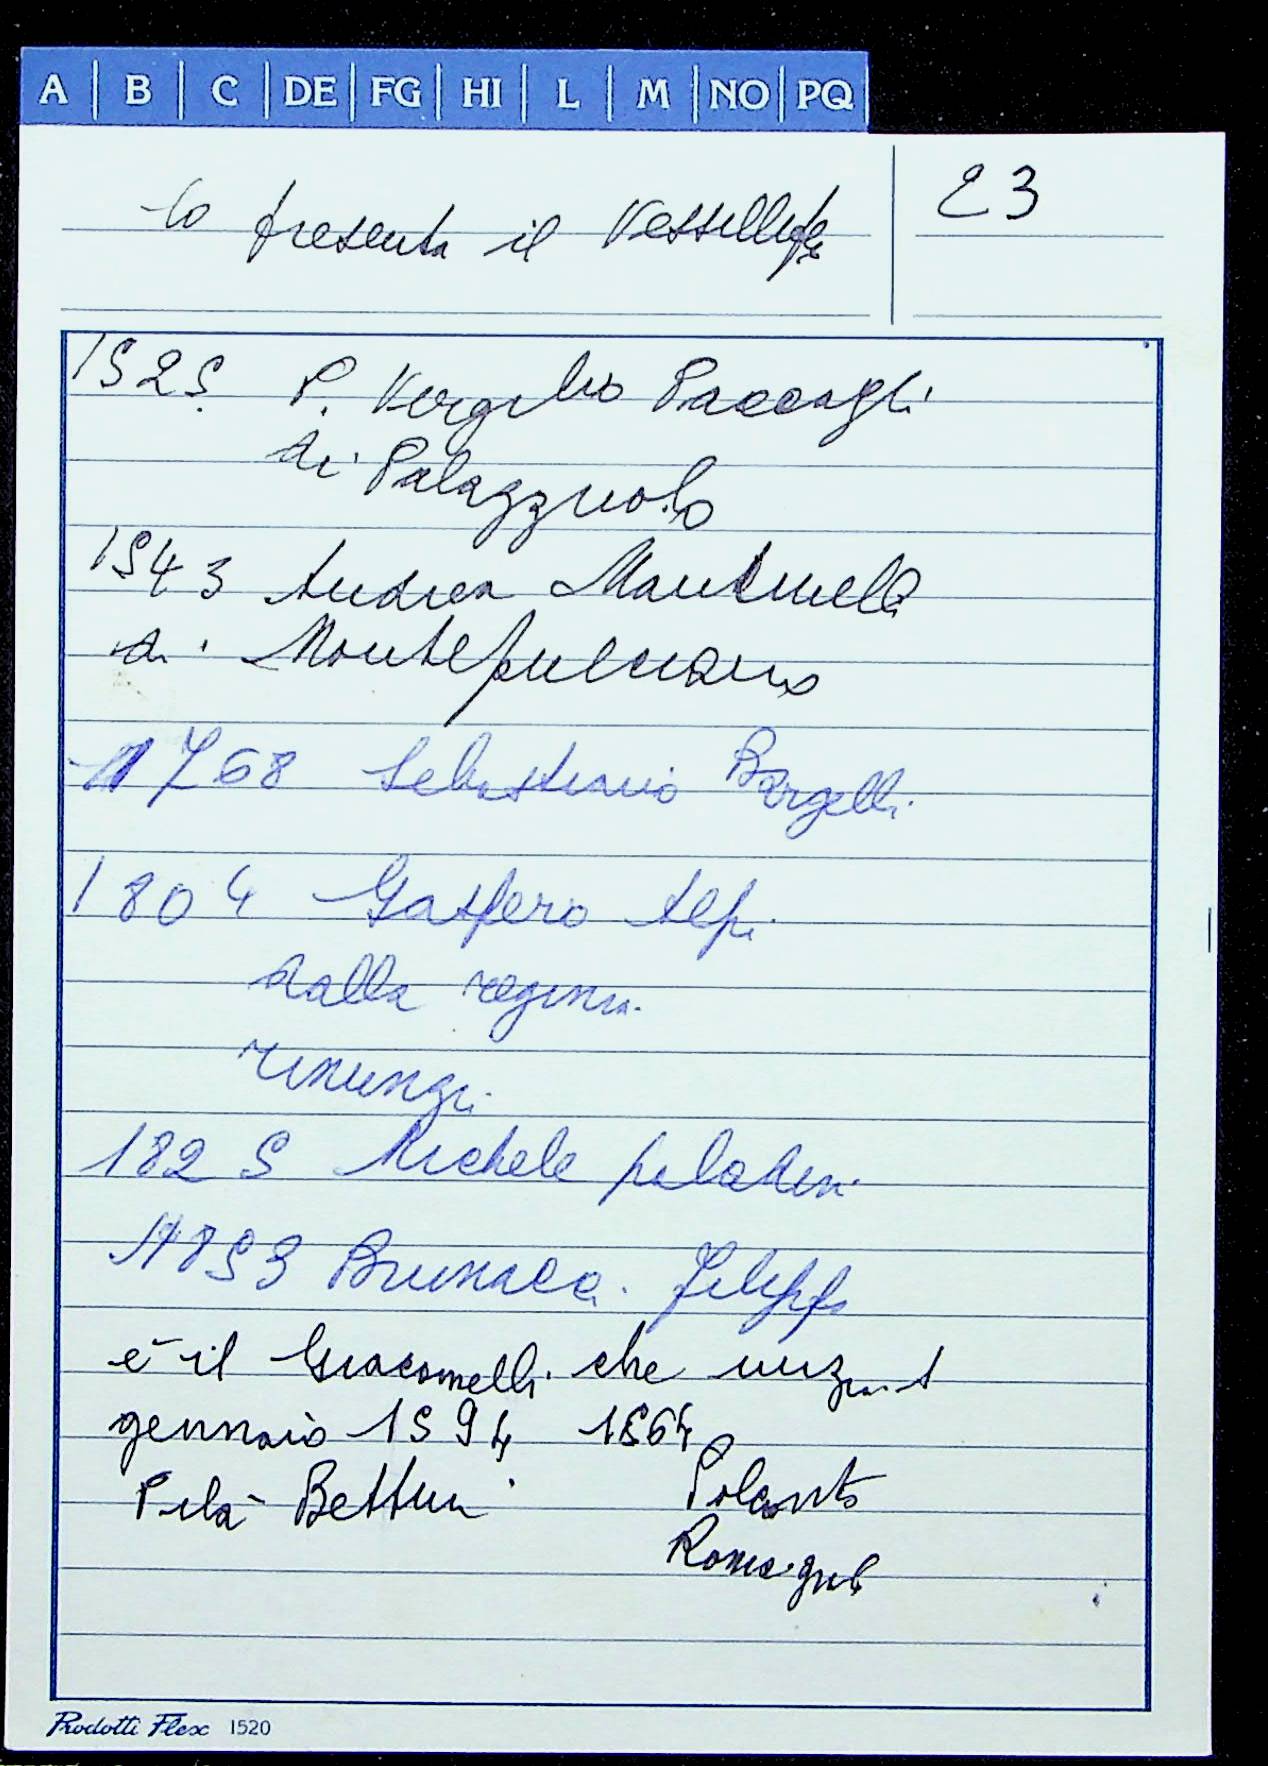 A B C DE FG HI L M NO PQ
lo presenta il
23
1525 P. Vergilio Paccagli
di Palazzuolo
1543 Andrea Martinelli
di Montepulciano
1768 Sebastiano Bargelli
1804 Gaspero Alpi
dalla regina
rinunzi
1825 Michele
1853 Brunacci Filippo
è il Giacomelli che
gennaio 1594 1564
Pila Bettini
Polcanto
Prodotti Flex 1520